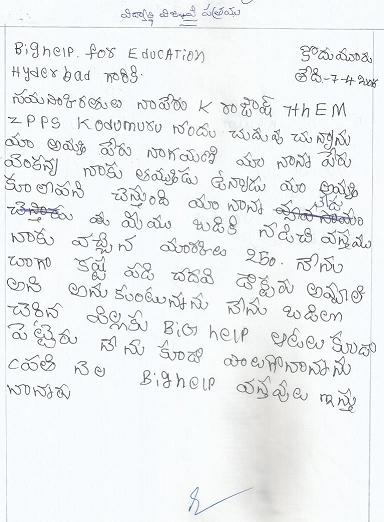 విద్యార్థి విజ్ఞప్తి పత్రము
BigHelp. for EDUCATION కొదుమూరు
Hyderbad గారికి. తేది-7-4-2008
నమస్కారములు నాపేరు K రాజేష్ 7th EM
ZPPS Kodumuru నందు చదువు చున్నాను
మా అమ్మ పేరు నాగమణి మా నాన్న పేరు
వెంకన్న నాకు తమ్ముడు ఉన్నాడు మా అమ్మ
కూలిపని చేస్తుంది మా నాన్న
ఈ మేము బడికి నడిచి వస్తము
నాకు వచ్చిన మార్కులు 250. నేను
బాగా కష్ట పడి చదివి డాక్టరు అవ్వాలి
అని అనుకుంటున్నాను నేను బడిలో
చేరిన పిల్లకు BiG help ఆటలు కూడా
పెట్టెరు నేను కూడా పాలగొనాన్నాను
ప్రతి నెల BigHelp వస్తవులు ఇస్తు
నాన్నారు